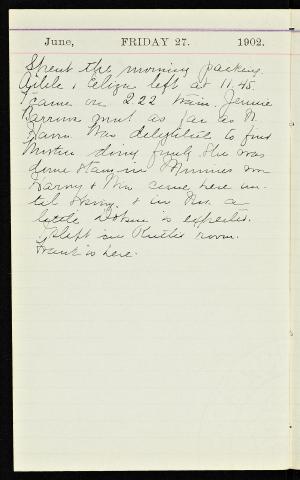 June, FRIDAY 27. 1902.
Spent the morning packing.
& Eliza left at 11.45.
I came on 2.22 train. Jennie
Barrows went as far as N.
Haven. Was delighted to find
Mother doing finely. She was
down stairs in Minnies room
Harry & Min came here un-
til & in Nov. a
little is expected.
I slept in Ruth's room.
Aunt is here.